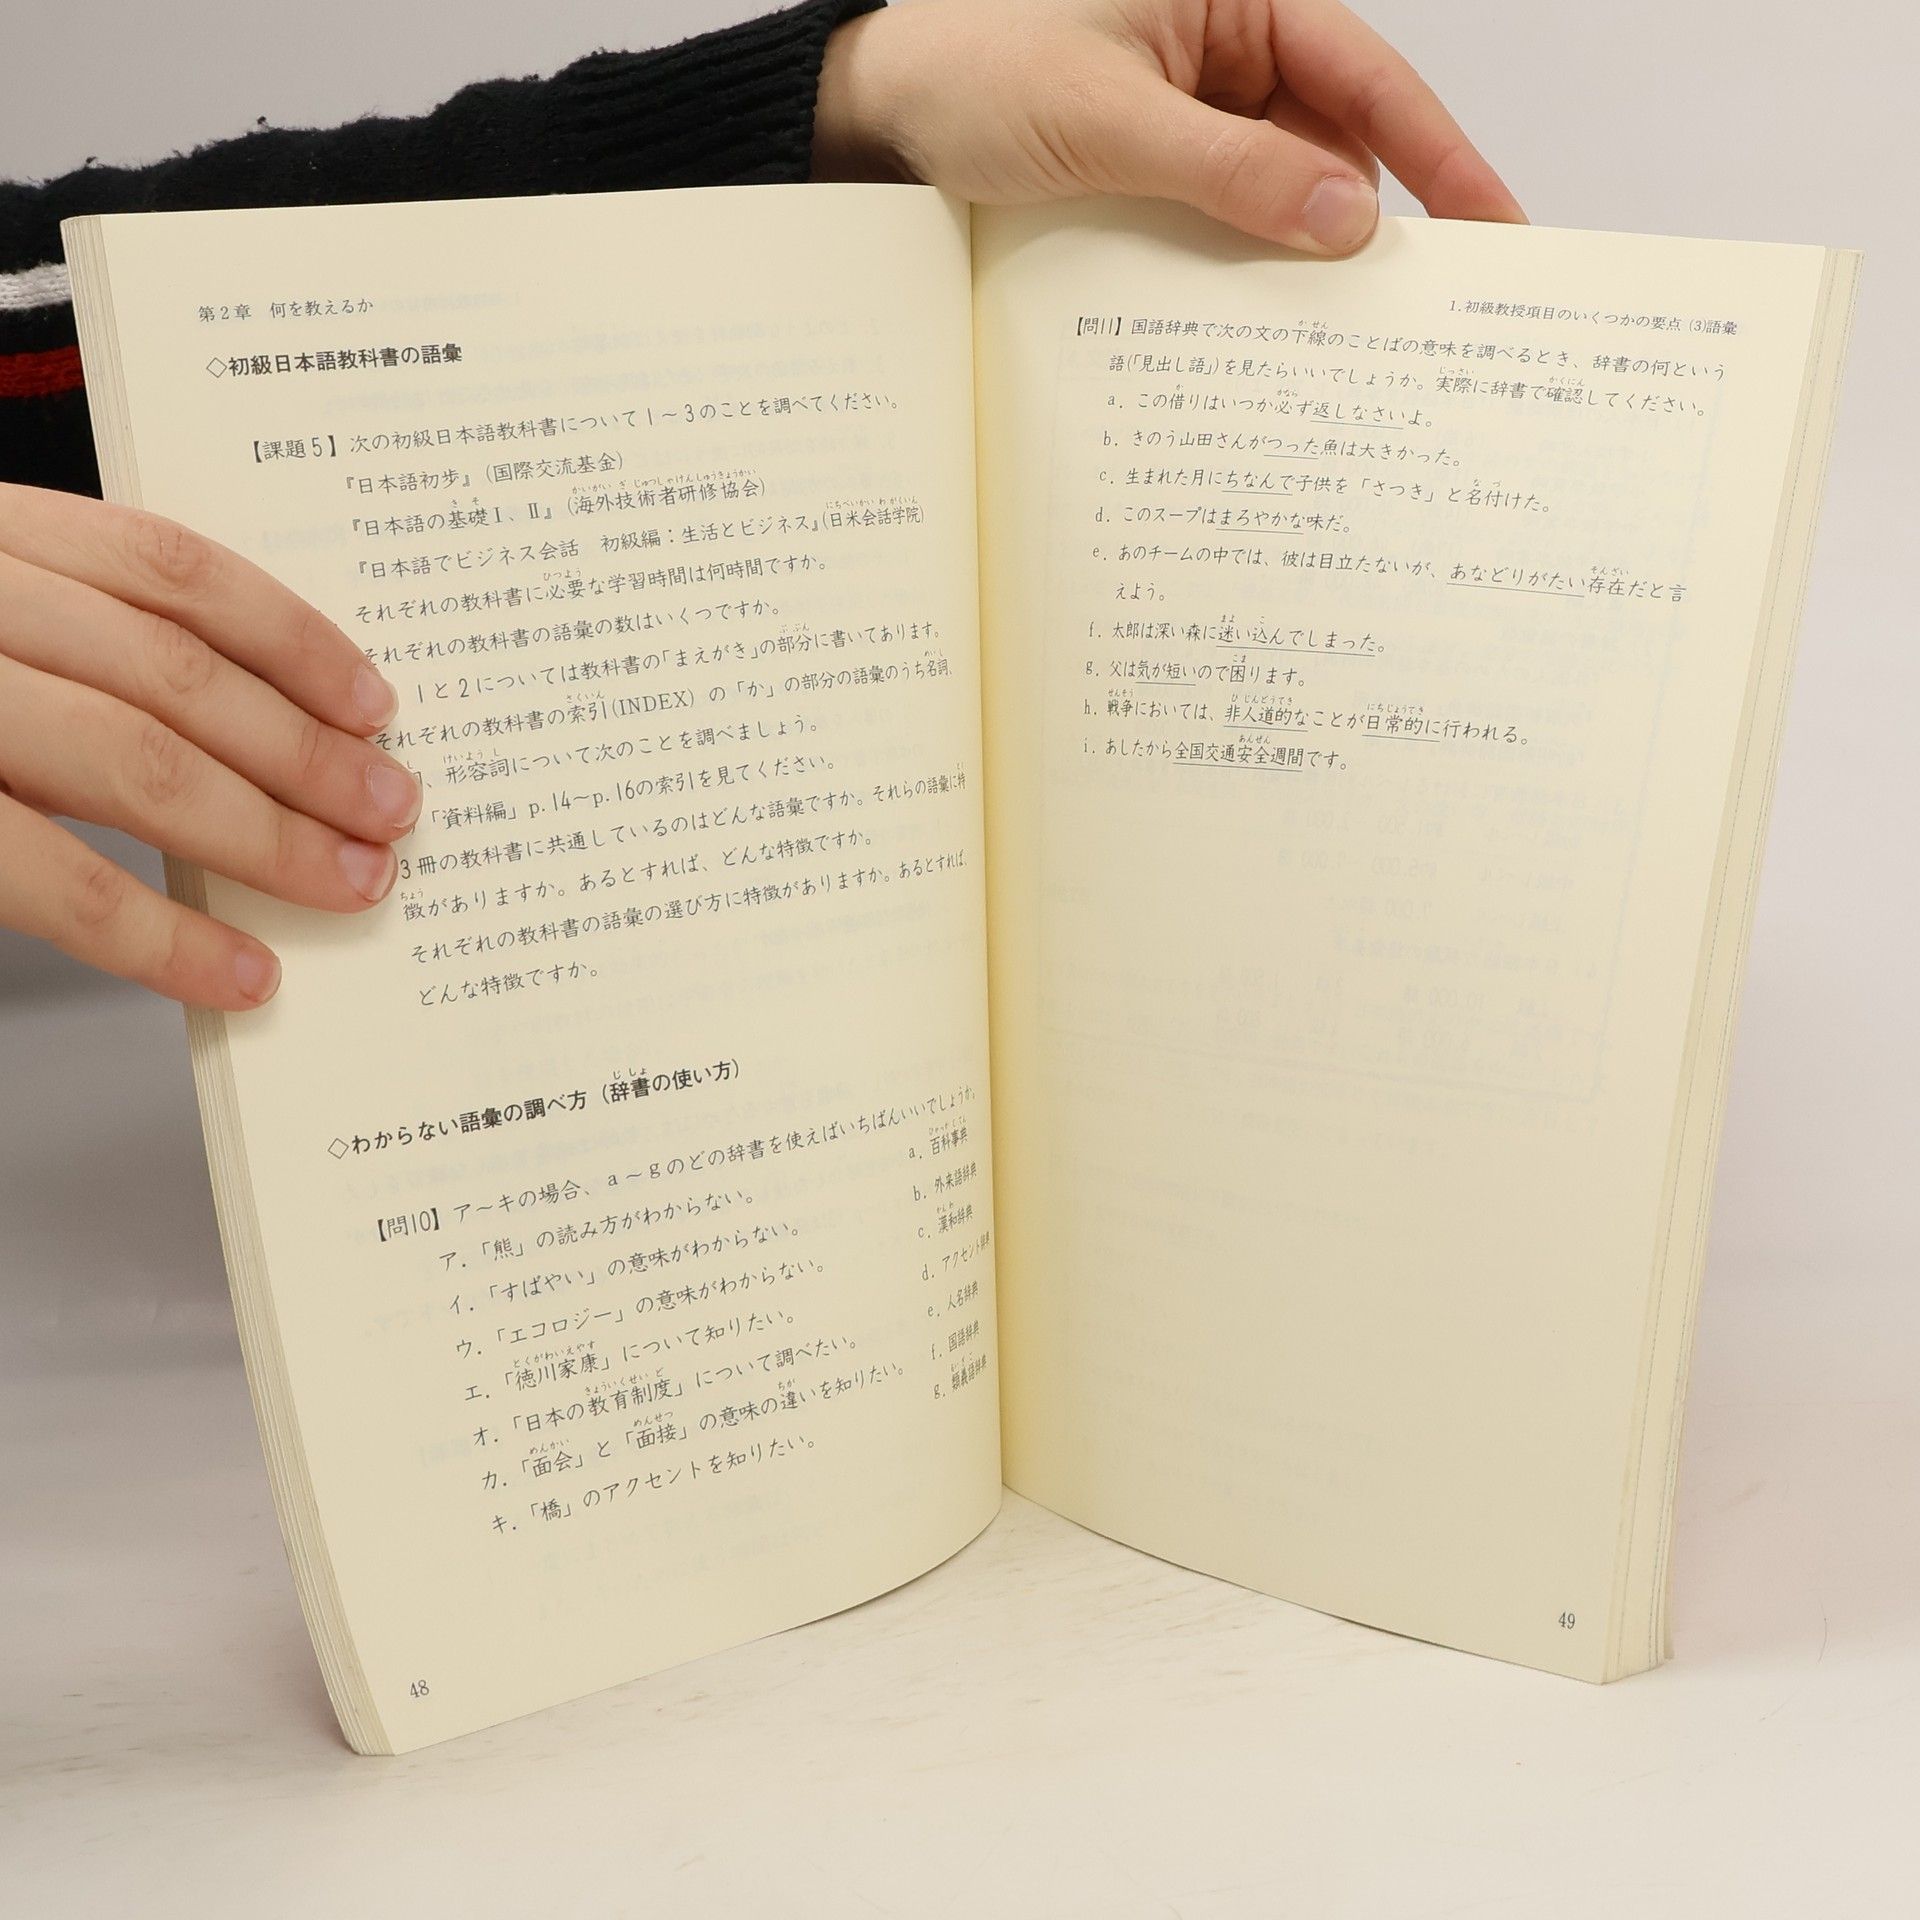 第2章　何を教えるか
◇初級日本語教科書の語彙
【課題5】次の初級日本語教科書について1～3のことを調べてください。
『日本語初歩』(国際交流基金)
『日本語の基礎Ⅰ、Ⅱ』(海外技術者研修協会)
『日本語でビジネス会話　初級編：生活とビジネス』(日米会話学院)
それぞれの教科書に必要な学習時間は何時間ですか。
それぞれの教科書の語彙の数はいくつですか。
1と2については教科書の「まえがき」の部分に書いてあります。
それぞれの教科書の索引(INDEX)の「か」の部分の語彙のうち名詞、
、形容詞について次のことを調べましょう。
「資料編」p.14～p.16の索引を見てください。
3冊の教科書に共通しているのはどんな語彙ですか。それらの語彙に特
徴がありますか。あるとすれば、どんな特徴ですか。
それぞれの教科書の語彙の選び方に特徴がありますか。あるとすれば、
どんな特徴ですか。
◇わからない語彙の調べ方（辞書の使い方）
【問10】ア～キの場合、a～gのどの辞書を使えばいちばんいいでしょうか。
ア．「熊」の読み方がわからない。
イ．「すばやい」の意味がわからない。
ウ．「エコロジー」の意味がわからない。
エ．「徳川家康」について知りたい。
オ．「日本の教育制度」について調べたい。
カ．「面会」と「面接」の意味の違いを知りたい。
キ．「橋」のアクセントを知りたい。
a．百科事典
b．外来語辞典
c．漢和辞典
d．アクセント辞典
e．人名辞典
f．国語辞典
g．類義語辞典
48
1.初級教授項目のいくつかの要点 (3)語彙
【問11】国語辞典で次の文の下線のことばの意味を調べるとき、辞書の何という
語(「見出し語」)を見たらいいでしょうか。実際に辞書で確認してください。
a．この借りはいつか必ず返しなさいよ。
b．きのう山田さんがつった魚は大きかった。
c．生まれた月にちなんで子供を「さつき」と名付けた。
d．このスープはまろやかな味だ。
e．あのチームの中では、彼は目立たないが、あなどりがたい存在だと言
えよう。
f．太郎は深い森に迷い込んでしまった。
g．父は気が短いので困ります。
h．戦争においては、非人道的なことが日常的に行われる。
i．あしたから全国交通安全週間です。
49